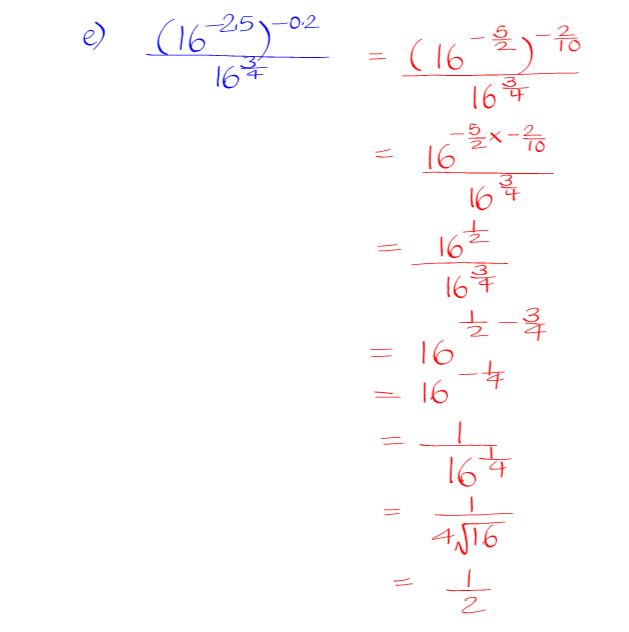 e) (16^-2.5)^-0.2 / 16^(3/4) = (16^(-5/2))^(-2/10) / 16^(3/4)
= 16^(-5/2 × -2/10) / 16^(3/4)
= 16^(1/2) / 16^(3/4)
= 16^(1/2 - 3/4)
= 16^(-1/4)
= 1 / 16^(1/4)
= 1 / 4√16
= 1/2